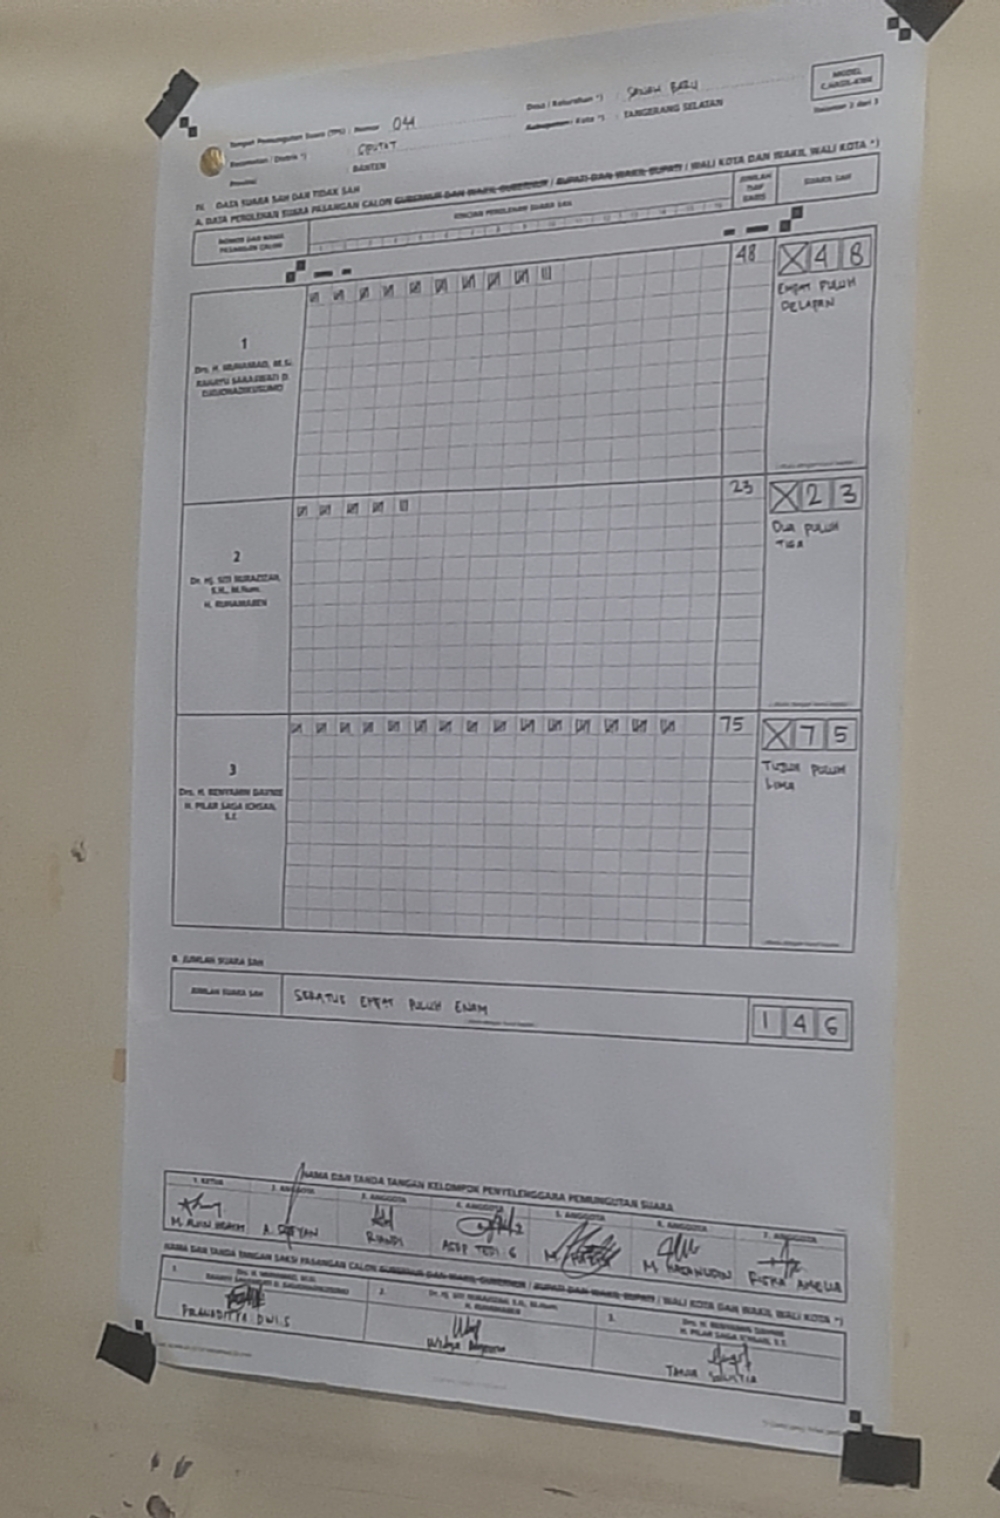 MODEL
C.HASIL-KWK
Halaman 2 dari 3
Tempat Pemungutan Suara (TPS) / Nomor : 044
Desa / Kelurahan *) : SAWAH BARU
Kecamatan / Distrik *) : CIPUTAT
Kabupaten / Kota *) : TANGERANG SELATAN
Provinsi : BANTEN
IV. DATA SUARA SAH DAN TIDAK SAH
A. DATA PEROLEHAN SUARA PASANGAN CALON GUBERNUR DAN WAKIL GUBERNUR / BUPATI DAN WAKIL BUPATI / WALI KOTA DAN WAKIL WALI KOTA *)
NOMOR DAN NAMA
PASANGAN CALON
RINCIAN PEROLEHAN SUARA SAH
JUMLAH
TIAP
BARIS
SUARA SAH
1 2 3 4 5 6 7 8 9 10 11 12 13 14 15 16
1
Drs. H. MUHAMAD, M.Si.
RAHAYU SARASWATI D.
DJOJOHADIKUSUMO
48
X 4 8
EMPAT PULUH
DELAPAN
2
Dr. Hj. SITI NURAZIZAH,
S.H., M.Hum.
H. RUHAMABEN
23
X 2 3
DUA PULUH
TIGA
3
Drs. H. BENYAMIN DAVNIE
H. PILAR SAGA ICHSAN,
S.T.
75
X 7 5
TUJUH PULUH
LIMA
B. JUMLAH SUARA SAH
JUMLAH SUARA SAH
SERATUS EMPAT PULUH ENAM
1 4 6
NAMA DAN TANDA TANGAN KELOMPOK PENYELENGGARA PEMUNGUTAN SUARA
1. KETUA
2. ANGGOTA
3. ANGGOTA
4. ANGGOTA
5. ANGGOTA
6. ANGGOTA
7. ANGGOTA
A. SOFYAN
RIANDI
ASEP TEDI G
M. HASANUDIN
RISKA AMELIA
NAMA DAN TANDA TANGAN SAKSI PASANGAN CALON GUBERNUR DAN WAKIL GUBERNUR / BUPATI DAN WAKIL BUPATI / WALI KOTA DAN WAKIL WALI KOTA *)
1. Drs. H. MUHAMAD, M.Si.
RAHAYU SARASWATI D. DJOJOHADIKUSUMO
2. Dr. Hj. SITI NURAZIZAH, S.H., M.Hum.
H. RUHAMABEN
3. Drs. H. BENYAMIN DAVNIE
H. PILAR SAGA ICHSAN, S.T.
PRANADITYA DWI.S